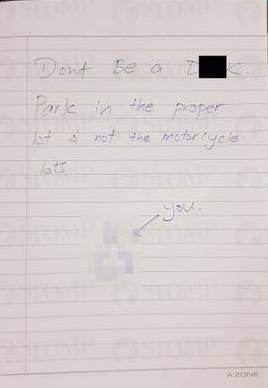 Dont Be a D K.
Park in the proper
lot & not the motorcycle
lots
you.
A'ZONE